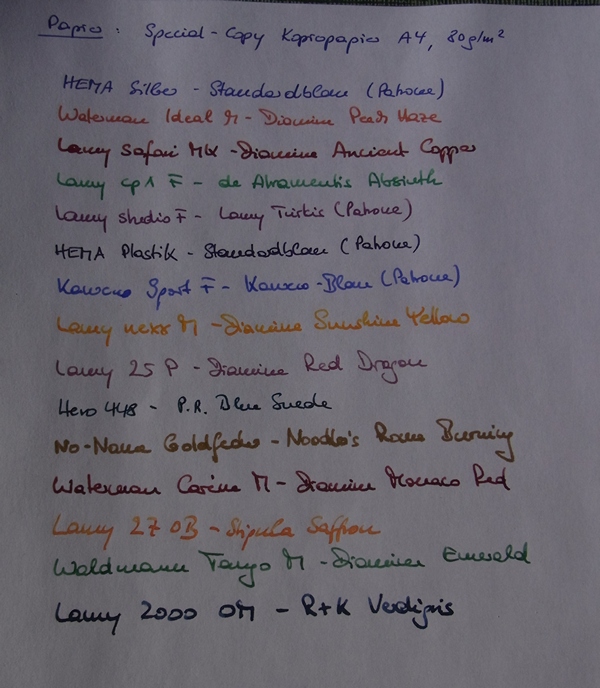 Papier: Special-Copy Kopierpapier A4, 80g/m²
HEMA Silber - Standardblau (Patrone)
Waterman Ideal M - Diamine Peach Haze
Lamy Safari MK - Diamine Ancient Copper
Lamy cp1 F - de Atramentis Absinth
Lamy studio F - Lamy Türkis (Patrone)
HEMA Plastik - Standardblau (Patrone)
Kaweco Sport F - Kaweco-Blau (Patrone)
Lamy nexx M - Diamine Sunshine Yellow
Lamy 25 P - Diamine Red Dragon
Hero 448 - P.R. Blue Suede
No-Name Goldfeder - Noodler's Rome Burning
Waterman Carène M - Diamine Monaco Red
Lamy 27 OB - Stipula Saffron
Waldmann Tango M - Diamine Emerald
Lamy 2000 OM - R+K Verdigris